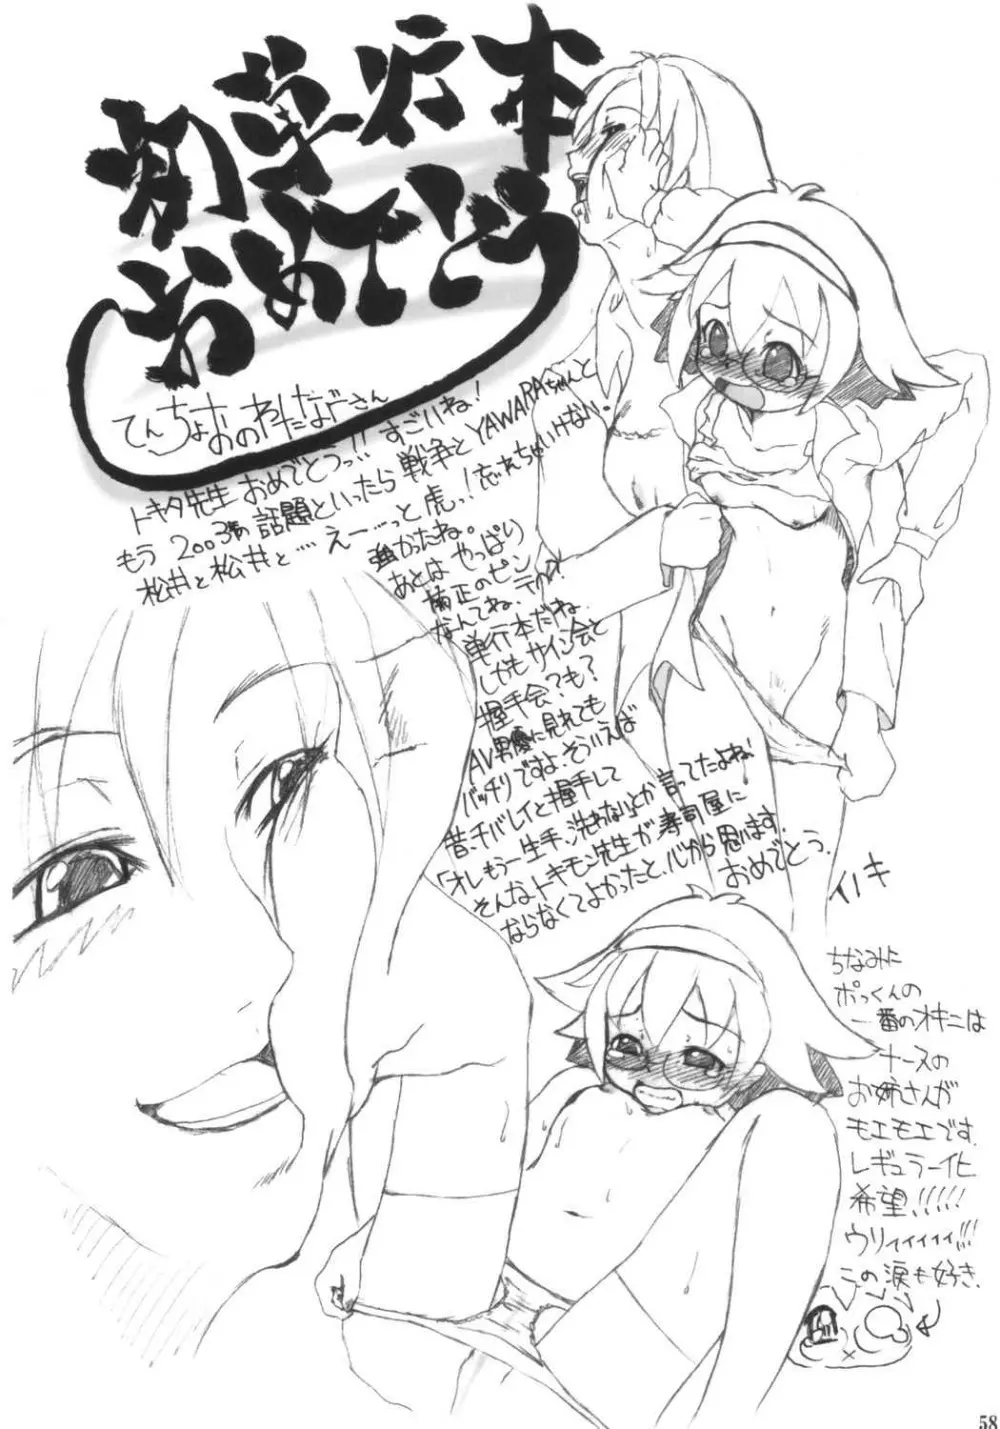 初単行本
おめでとう
てんちょおのわだなべさん
トキタ先生おめでとうっ!!すごいね!
もう2003年の話題といったら戦争とYAWARAちゃんと
松井と松井と…えーーっと虎っ!忘れちゃいけない。
強かったね。
あとはやっぱり
なんてね、テヘッ!
単行本だね
しかもサイン会と
握手会?も?
AV男優に見れても
バッチリですよ。そういえば
昔、チバレイと握手して
「オレもう一生手、洗わない」とか言ってたよね!
そんなトキモン先生が寿司屋に
ならなくてよかったと、心から思います。
おめでとっ。
イノキ
ちなみに
ボっくんの
一番のオキニは
ナースの
お姉さんが
モエモエです。
レギュラー化
希望!!!!!
ウリィィィィィ!!!
この涙も好き。
58